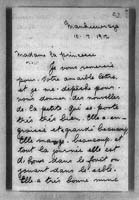 52
15-7-1912
Madame la princesse
Je vous remercie
pour votre aimable lettre,
et je me dépêche pour
vous donner des nouvelles
de la petite qui se porte
très très bien. Elle a en-
graissé et grandi beaucoup
Elle mange beaucoup et
tout la journée elle est
dehors dans le forêt ou
jouant dans le sable.
Elle a très bonne mine